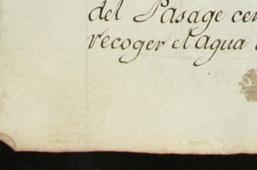 del Pasage cer
recoger el agua